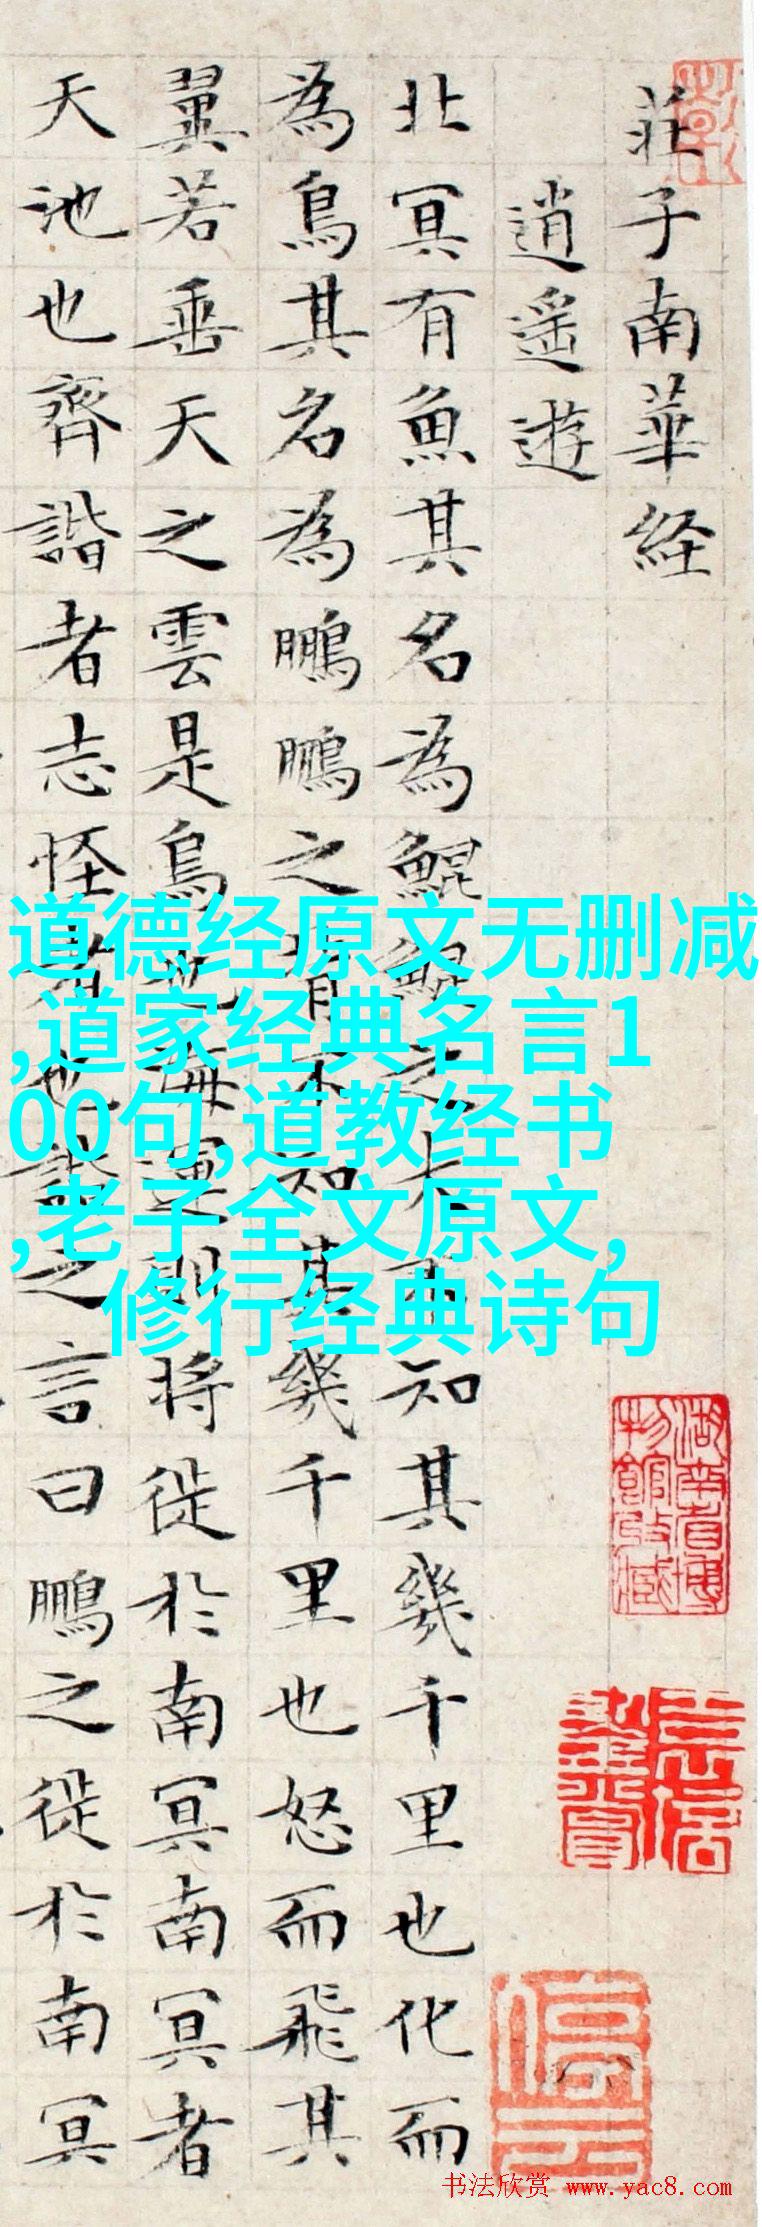 莊子南華経
逍遥遊
北冥有魚其名為鯤鯤之大不知其幾千里也化而
為鳥其名為鵬鵬之背不知其幾千里也怒而飛其
翼若垂天之雲是鳥也海運則将徙於南冥南冥者
天池也齊諧者志怪者也諧之言曰鵬之徙於南冥
道德经原文无删减
,道家经典名言1
00句,道教经书
,老子全文原文,
修行经典诗句
湖南省博
物館收藏
停云
书法欣赏 www.yac8.com